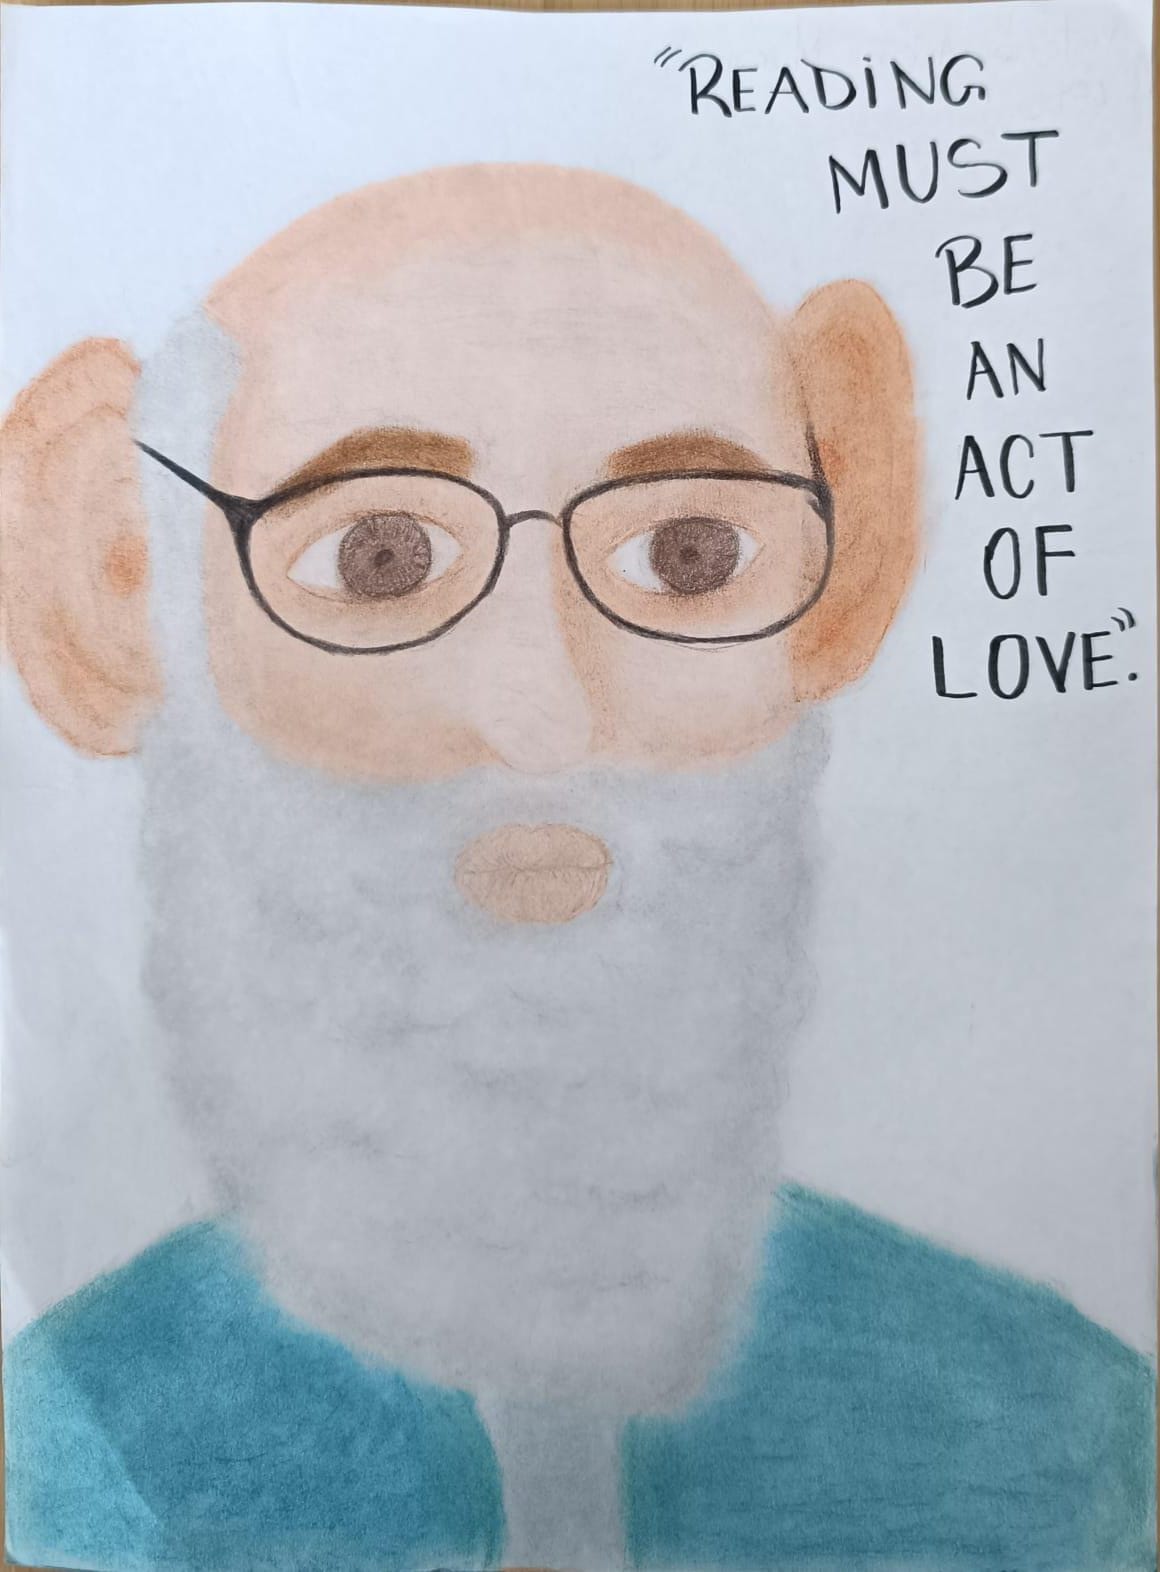 "READING
MUST
BE
AN
ACT
OF
LOVE".